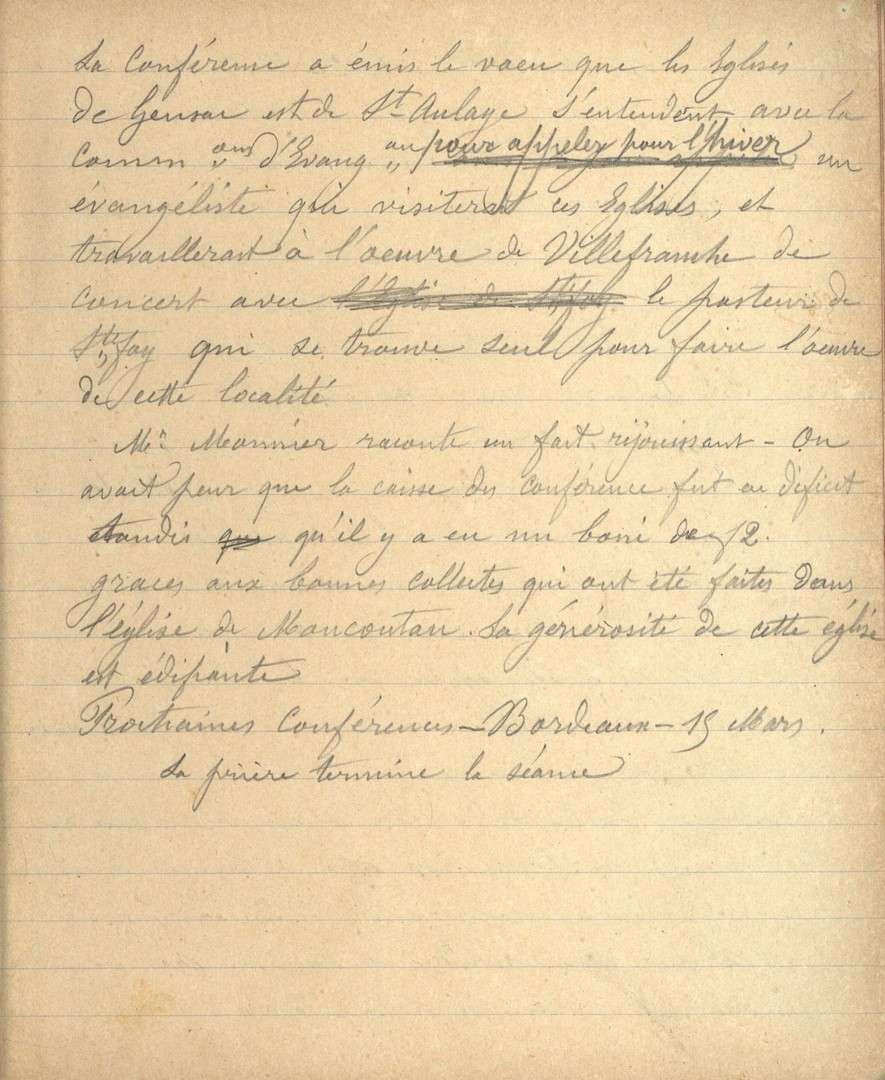 La Conférence a émis le voeu que les Eglises
de Gensac et de St-Aulaye s'entendent avec la
Comm.on d'Evang.on pour appeler pour l'hiver un
évangéliste qui visiterait ces Eglises, et
travaillerait à l'oeuvre de Villefranche de
concert avec l'Eglise de Ste foy le pasteur de
Ste foy qui se trouve seul pour faire l'oeuvre
de cette localité
Mr Monnier raconte un fait réjouissant - On
avait peur que la caisse des conférence fut en déficit
tandis que qu'il y a eu un boni de 12.
graces aux bonnes collectes qui ont été faites dans
l'église de Moncoutan. La générosité de cette église
est édifiante
Prochaines Conférences - Bordeaux - 15 Mars.
La prière termine la séance